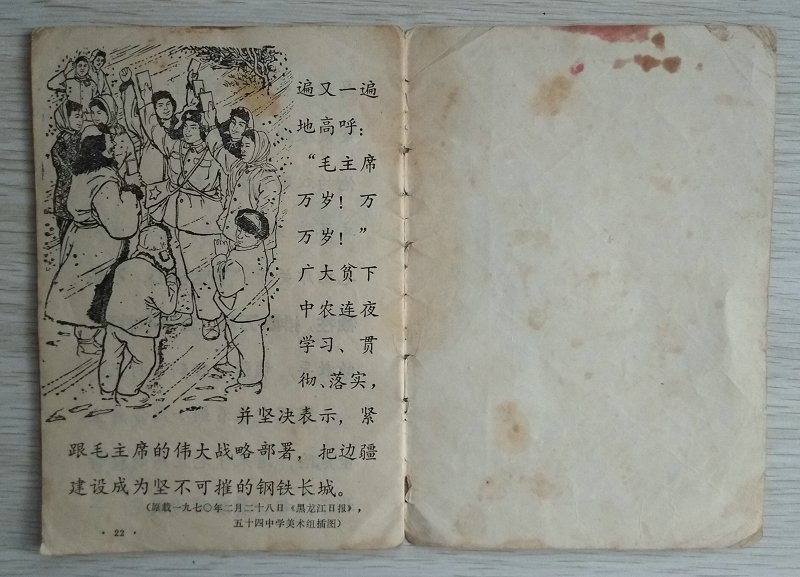 遍又一遍
地高呼：
“毛主席
万岁！万
万岁！”
广大贫下
中农连夜
学习、贯
彻、落实，
并坚决表示，紧
跟毛主席的伟大战略部署，把边疆
建设成为坚不可摧的钢铁长城。
（原载一九七〇年二月二十八日《黑龙江日报》，
五十四中学美术组插图）
· 22 ·